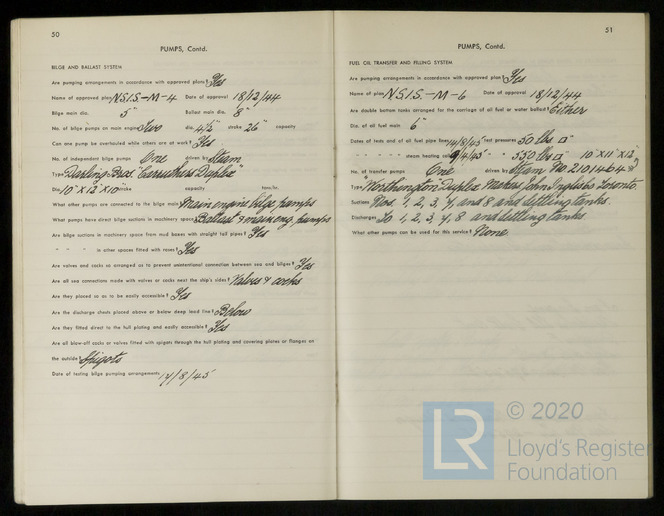 50
PUMPS, Contd.
BILGE AND BALLAST SYSTEM
Are pumping arrangements in accordance with approved plans? Yes
Name of approved plan N.S.I.S.-M-4 Date of approval 18/12/44
Bilge main dia. 5" Ballast main dia. 8"
No. of bilge pumps on main engine Two dia. 4½" stroke 26" capacity
Can one pump be overhauled while others are at work? Yes
No. of independent bilge pumps One driven by Steam
Type Darling Bros. Carruthers Duplex"
Dia. 10" x 12" x 10" stroke capacity tons/hr.
What other pumps are connected to the bilge main? Main engine bilge pumps
What pumps have direct bilge suctions in machinery space? Ballast & main eng. pumps
Are bilge suctions in machinery space from mud boxes with straight tail pipes? Yes
" " " in other spaces fitted with roses? Yes
Are valves and cocks so arranged as to prevent unintentional connection between sea and bilges? Yes
Are all sea connections made with valves or cocks next the ship's sides? Valves & cocks
Are they placed so as to be easily accessible? Yes
Are the discharge chests placed above or below deep load line? Below
Are they fitted direct to the hull plating and easily accessible? Yes
Are all blow-off cocks or valves fitted with spigots through the hull plating and covering plates or flanges on
the outside? Spigots
Date of testing bilge pumping arrangements 14/8/45
51
PUMPS, Contd.
FUEL OIL TRANSFER AND FILLING SYSTEM
Are pumping arrangements in accordance with approved plan? Yes
Name of plan N.S.I.S.-M-6 Date of approval 18/12/44
Are double bottom tanks arranged for the carriage of oil fuel or water ballast? Either
Dia. of oil fuel main 6"
Dates of tests and of all fuel pipe lines 14/8/45 Test pressures 50 lbs □"
" " " " steam heating coils 9/4/45 " " 350 lbs □" 10" x 11" x 12"
No. of transfer pumps One driven by Steam No. 2101464 &
Type "Worthington" Duplex Makers John Inglis Co Toronto.
Suctions Nos. 1, 2, 3, 4, and 8 and settling tanks.
Discharges To 1, 2, 3, 4, 8 and settling tanks
What other pumps can be used for this service? None
LR © 2020
Lloyd's Register
Foundation